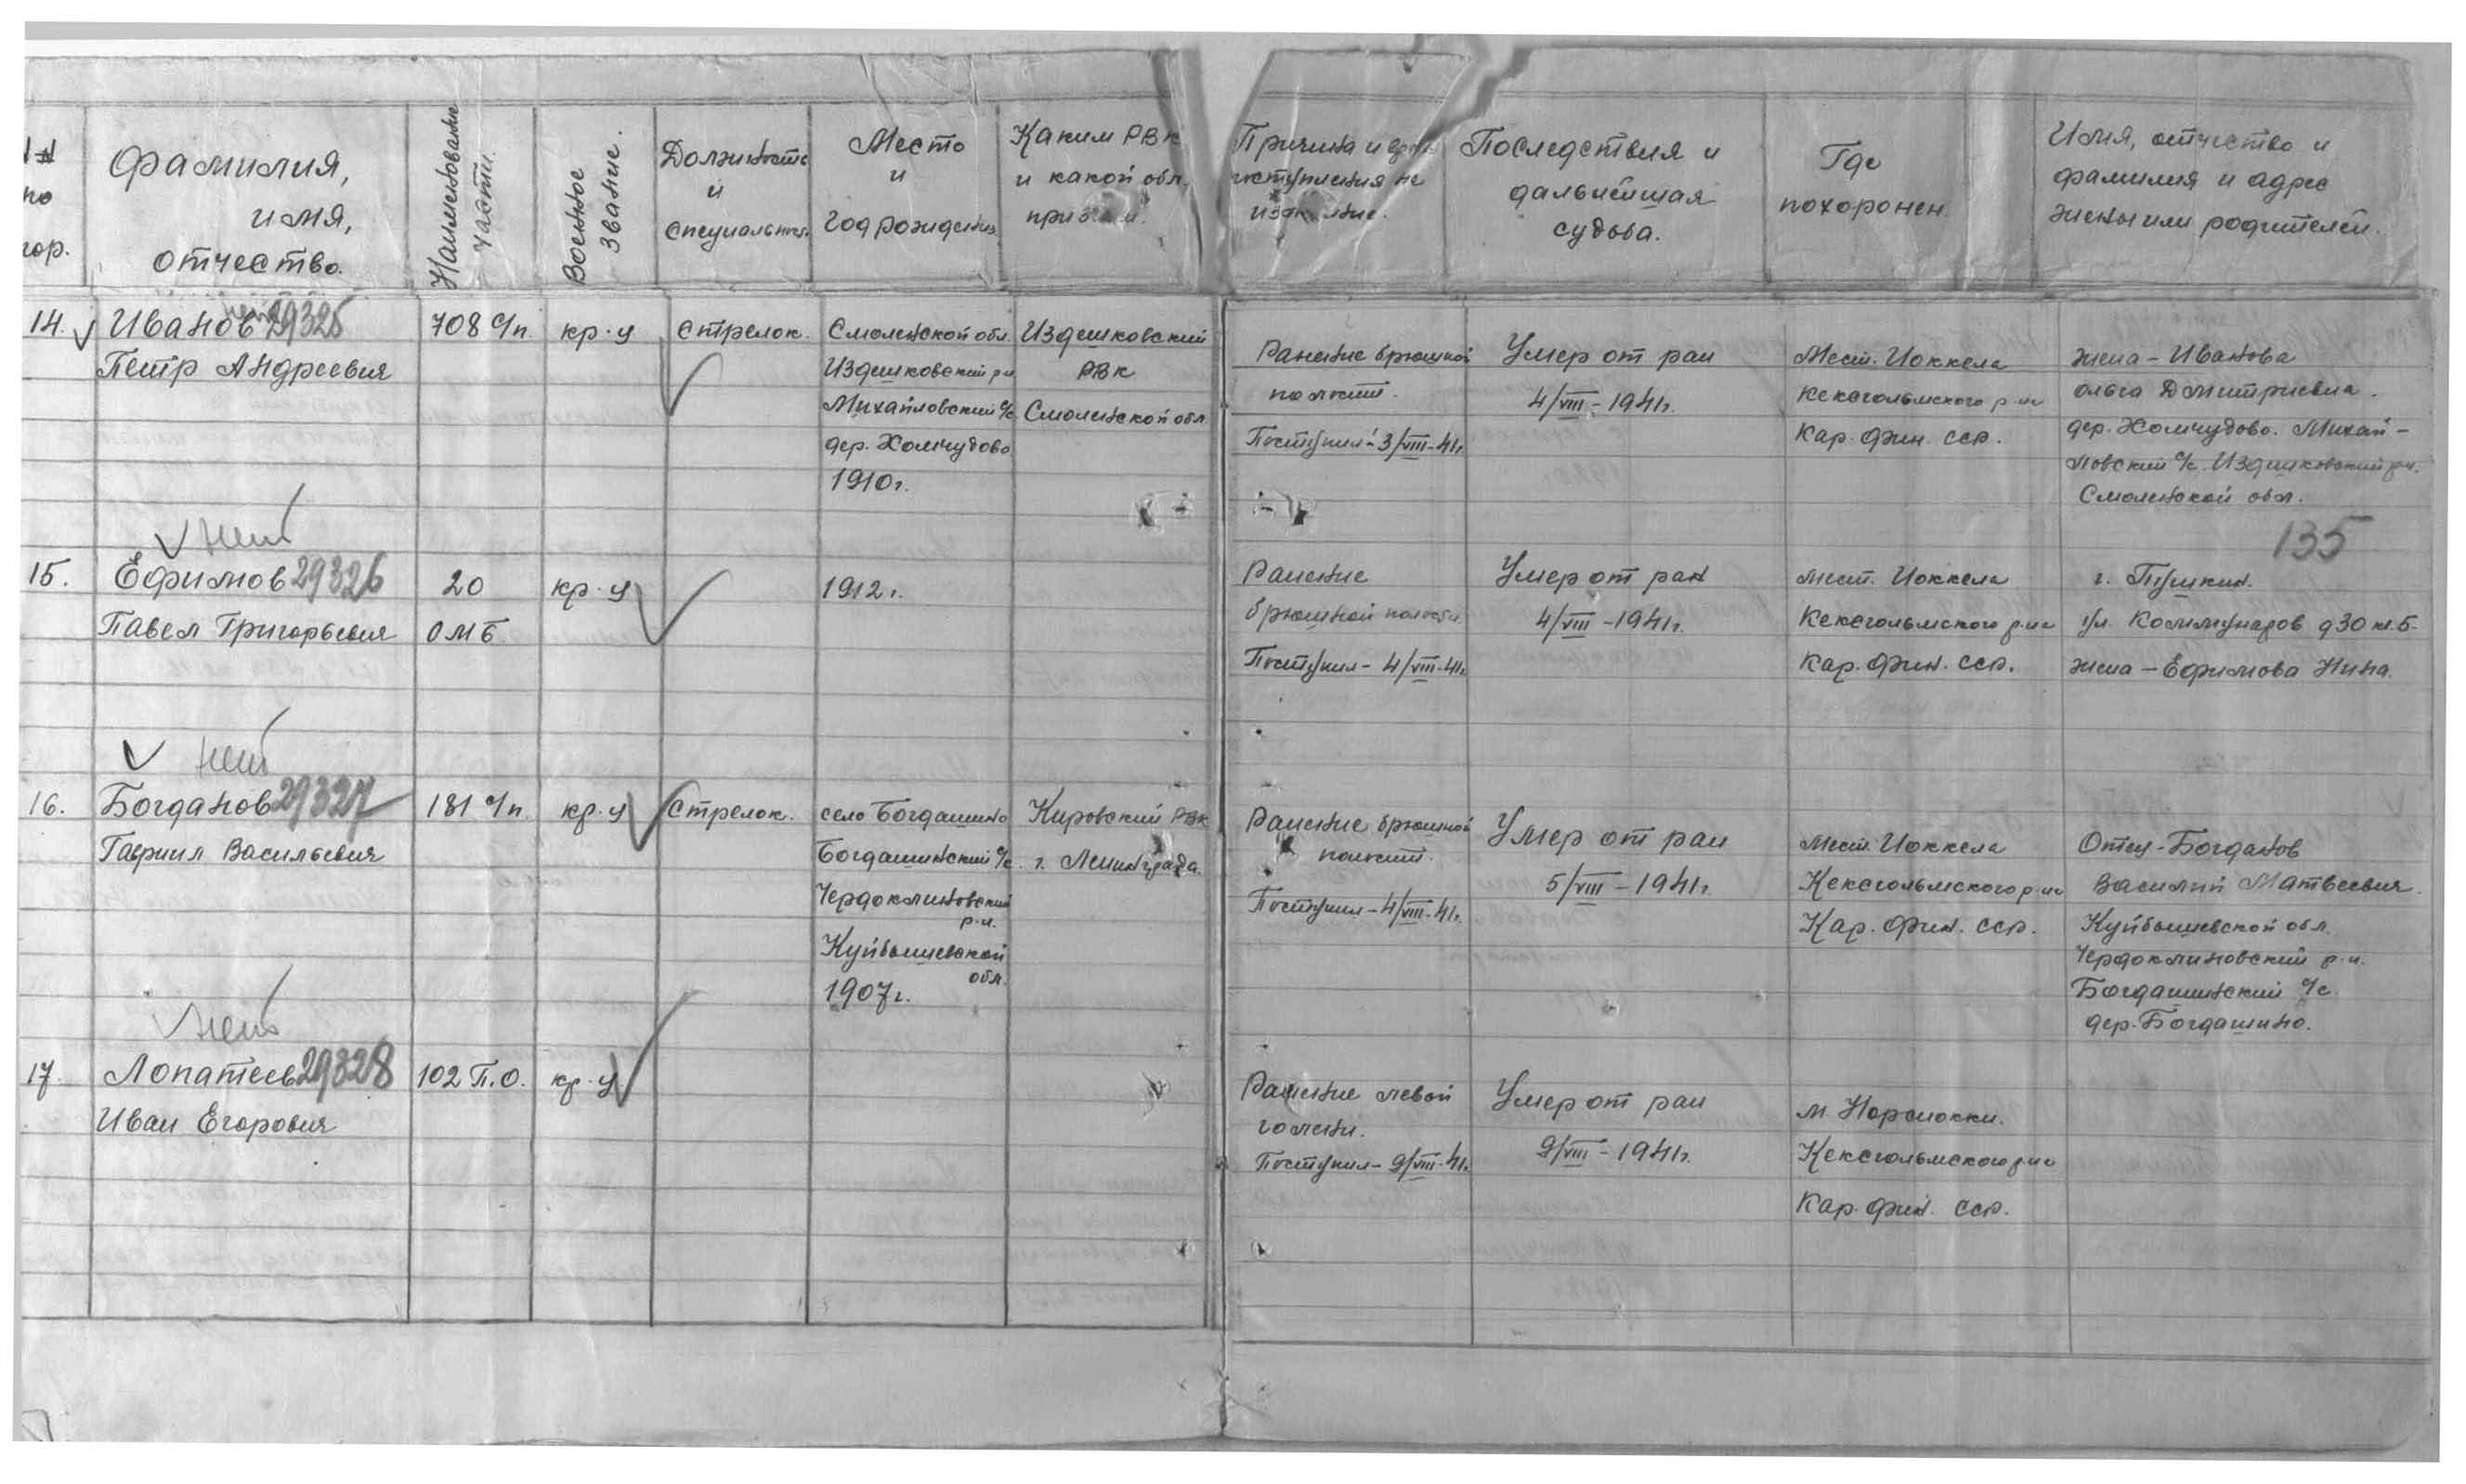 №№
по
пор.
Фамилия,
имя,
отчество.
Наименование
части.
Военное
звание.
Должность
и
специальност.
Место
и
год рождения
Каким РВК
и какой обл.
призван.
Причина и время
поступления на
излечение.
Последствия и
дальнейшая
судьба.
Где
похоронен
Имя, отчество и
фамилия и адрес
жены или родителей.
14.
Иванов 29325
Петр Андреевич
708 с/п.
кр-ц
Стрелок.
Смоленской обл.
Издешковский р-н
Михайловский с/с
дер. Холмчудово
1910г.
Издешковский
РВК
Смоленской обл
Ранение брюшной
полости.
Поступил-3/VIII-41г.
Умер от ран
4/VIII-1941г.
Мест. Иоккела
Кексгольмского р-на
Кар. Фин. ССР.
жена - Иванова
Ольга Дмитриевна.
дер. Холмчудово. Михай-
ловский с/с. Издешковский р-н.
Смоленской обл.
135
нет
15.
Ефимов 29326
Павел Григорьевич
20
ОМБ
кр-ц
1912г.
Ранение
брюшной полости.
Поступил-4/VIII-41г.
Умер от ран
4/VIII-1941г.
Мест. Иоккела
Кексгольмского р-на
Кар. Фин. ССР.
г. Пушкин.
ул. Коммунаров д30 кв.5-
жена - Ефимова Нина.
нет
16.
Богданов 29327
Гавриил Васильевич
181 с/п
кр-ц
Стрелок.
село Богдашино
Богдашинский с/с
Чердоклиновский
р-н.
Куйбышевской
обл.
1907г.
Кировский РВК
г. Ленинграда.
Ранение брюшной
полости.
Поступил-4/VIII-41г.
Умер от ран
5/VIII-1941г.
Мест. Иоккела
Кексгольмского р-на
Кар. Фин. ССР.
Отец-Богданов
Василий Матвеевич.
Куйбышевской обл.
Чердоклиновский р-н.
Богдашинский с/с
дер. Богдашино.
нет
17.
Лопатеев 29328
Иван Егорович
102 П.О.
кр-ц
Ранение левой
голени.
Поступил-9/VIII-41г.
Умер от ран
9/VIII-1941г.
м.
Кексгольмского р-на
Кар. Фин. ССР.